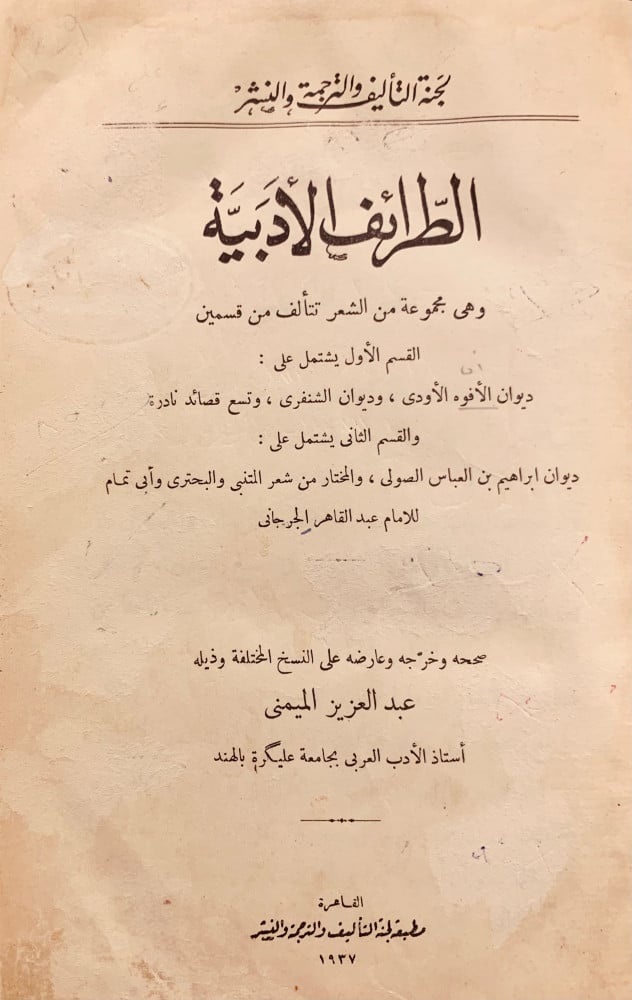 لجنة التأليف والترجمة والنشر
الطّرائف الأدَبَيَّة
وهى مجموعة من الشعر تتألف من قسمين
القسم الأول يشتمل على :
ديوان الأفوه الأودى ، وديوان الشنفرى ، وتسع قصائد نادرة
والقسم الثانى يشتمل على :
ديوان ابراهيم بن العباس الصولى ، والمختار من شعر المتنبى والبحترى وأبى تمام
للامام عبد القاهر الجرجانى
صححه وخرّجه وعارضه على النسخ المختلفة وذيله
عبد العزيز الميمنى
أستاذ الأدب العربى بجامعة عليگرة بالهند
القاهرة
مطبعة لجنة التأليف والترجمة والنشر
١٩٣٧